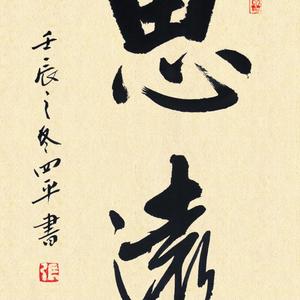 思遠
壬辰之冬四平書